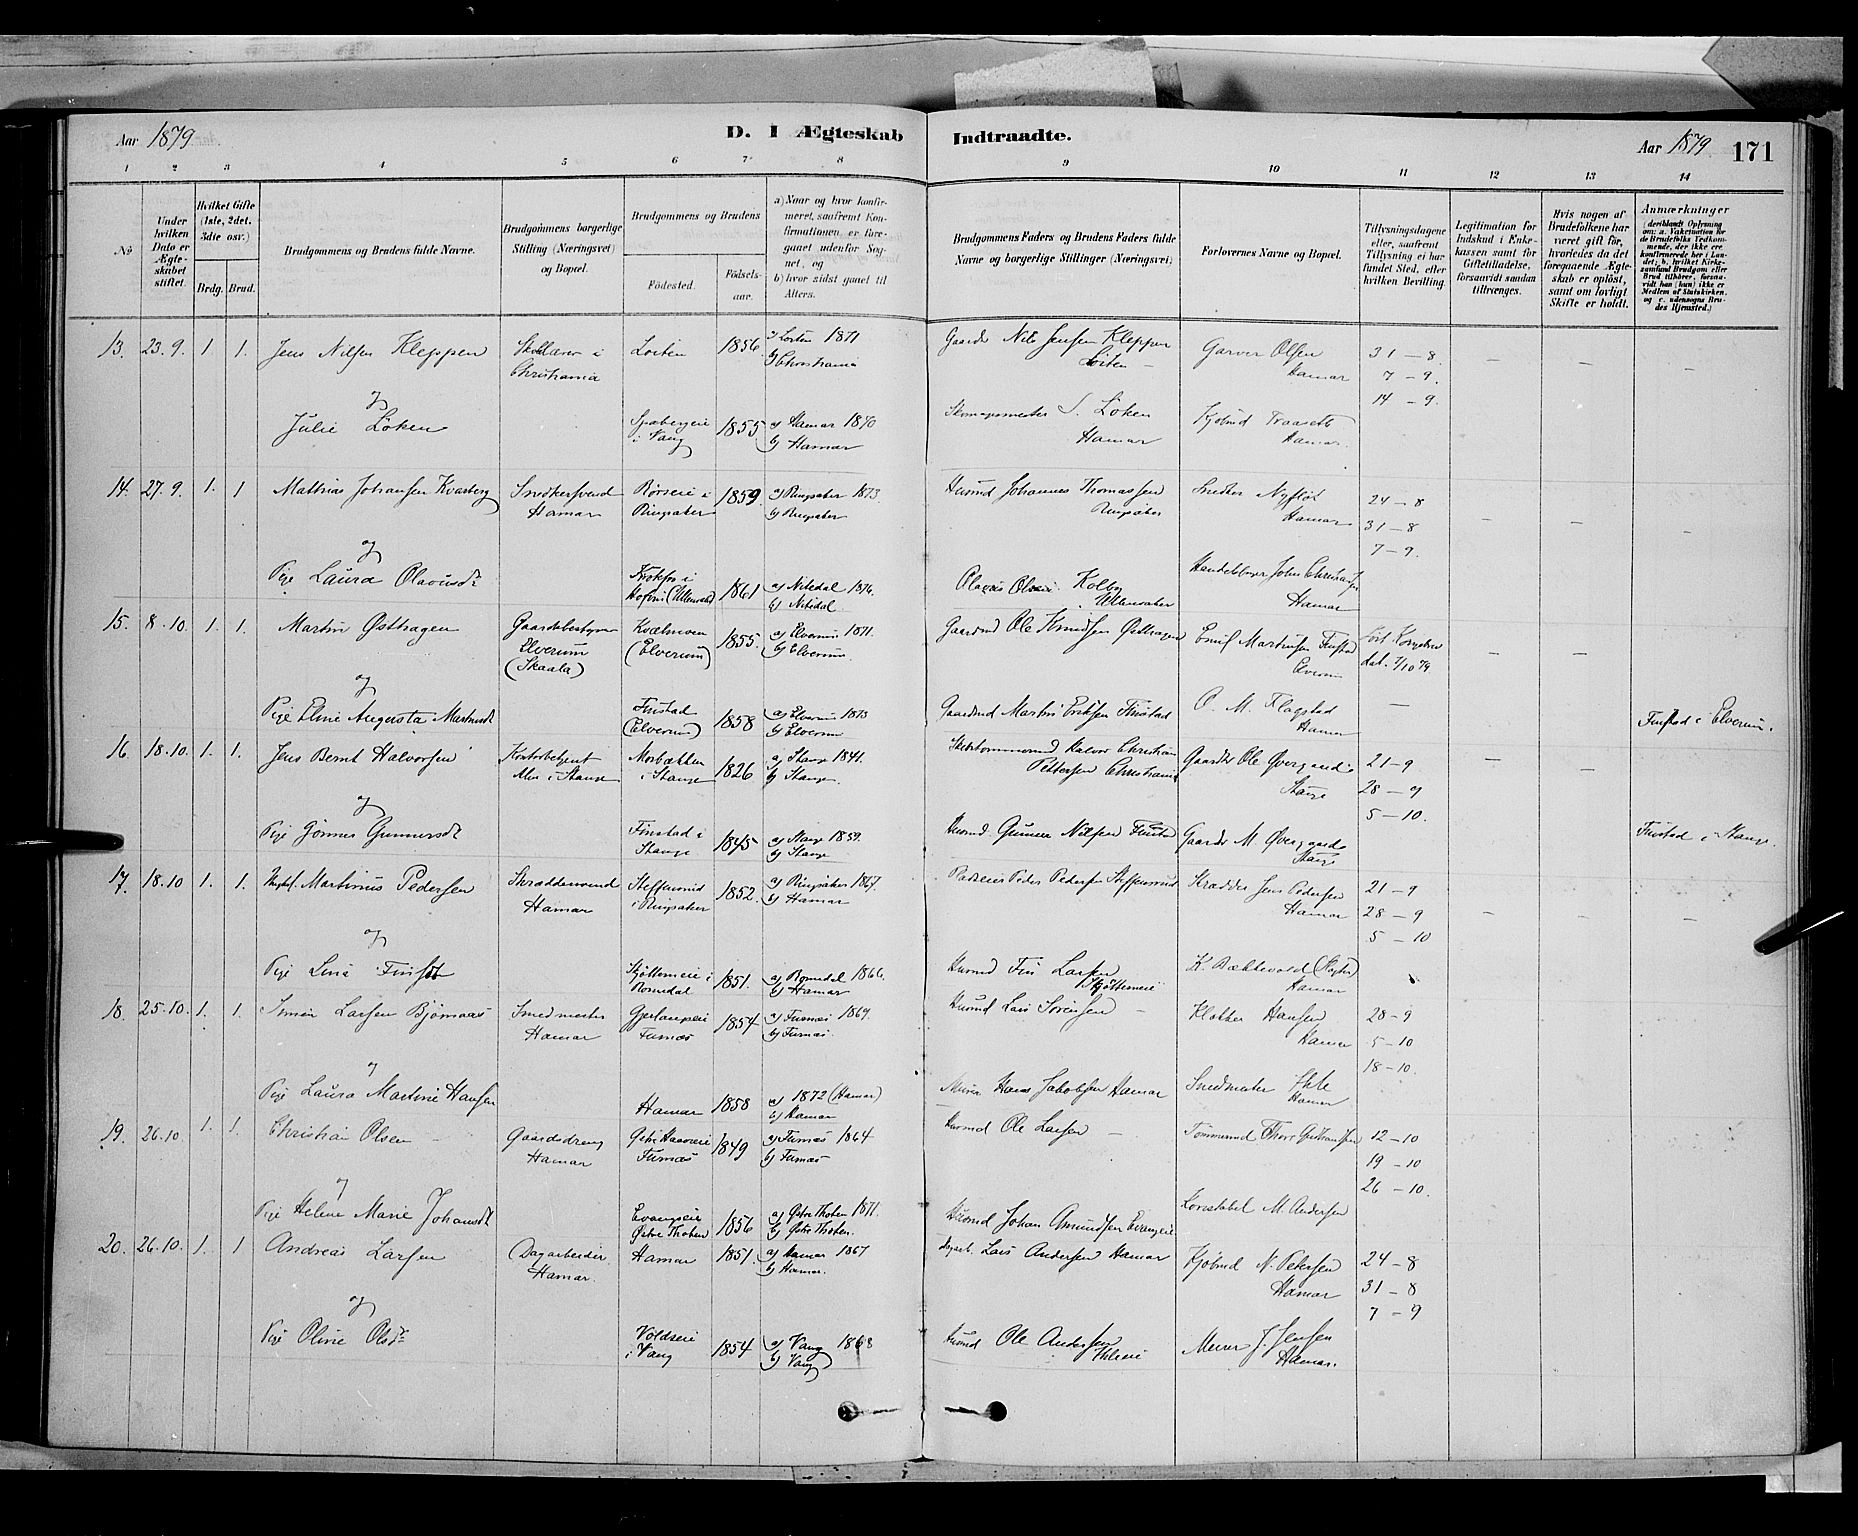 Aar 1879
D. I Ægteskab Indtraadte.
Aar 1879. 171
1 2 3 4 5 6 7 8 9 10 11 12 13 14
No.
Under hvilken Dato er Ægteskabet stiftet.
Hvilket Gifte (1ste, 2det, 3die osv.)
Brdg. Brud.
Brudgommens og Brudens fulde Navne.
Brudgommens borgerlige Stilling (Næringsvei) og Bopæl.
Brudgommens og Brudens
Fødested.
Fødselsaar.
a) Naar og hvor konfirmeret, saafremt Konfirmationen er foregaaet udenfor Sognet, og
b) hvor sidst gaaet til Alters.
Brudgommens Faders og Brudens Faders fulde Navne og borgerlige Stillinger (Næringsvei)
Forlovernes Navne og Bopæl.
Tillysningsdagene eller, saafremt Tillysning ei har fundet Sted, efter hvilken Bevilling.
Legitimation for Indskud i Enkekassen samt for Giftetilladelse, forsaavidt saadan tiltrænges.
Hvis nogen af Brudefolkene har været gift før, hvorledes da det foregaaende Ægteskab er opløst, samt om lovligt Skifte er holdt.
Anmærkninger (deriblandt Oplysning om: a. Vakcination for de Brudefolks Vedkommende, der ikke ere konfirmerede her i Landet; b. hvilket Kirkesamfund Brudgom eller Brud tilhører, forsaavidt han (hun) ikke er Medlem af Statskirken, og c. udensogns Brudes Hjemsted.)
13. 23.9. 1. 1. Jens Nilsen Kleppen Skolelærer i Christiania Løiten 1856 a) Løiten 1871 b) Christiania Gaardbr Nils Jensen Kleppen Løiten Garver Olsen Hamar 31 – 8. 7 – 9. 14 – 9.
og
Julie Løken i Vang 1855 a) Hamar 1870 b) Hamar Skomagermester S. Løken Hamar Kjøbmd Hamar
14. 27.9. 1. 1 Mathias Johansen Kvarberg Snedkersvend Hamar Rørseie i Ringsaker 1859. a) Ringsaker 1873. b) Ringsaker Husmd Johannes Thomassen Ringsaker Snedker Hamar 24 – 8 31 – 8 7 – 9.
og
Pige Laura Olavusdt (Ullensaker) 1861 a) Nitedal 1876. b) Nitedal Olavus Olsen Kolby Ullensaker John Christiansen Hamar
15. 8.10. 1. 1. Martin Østhagen Gaardsbestyrer Elverum (Skaala) Kvælmoen (Elverum) 1855. a) Elverum 1871. b) Elverum. Gaardmd Ole Knudsen Østhagen Emil Martinsen Finstad Elverum dat. 7/10 79
og
Pige Eline Augusta Martinsdt Finstad (Elverum) 1858 a) Elverum 1873 b) Elverum Gaardmd Martin Eriksen Finstad O. M. Flagstad Hamar — Finstad i Elverum.
16. 18.10. 1. 1. Jens Bernt Halvorsen Kontorbetjent i Stange Morbækken i Stange 1826 a) Stange 1841. b) Stange. Halvor Christian Pettersen Christiania Gaardbr Ole Øvergaard Stange 21 – 9 28 – 9 5 – 10.
og
Pige Gunnersdt Finstad i Stange 1845 a) Stange 1859. b) Stange Husmd. Gunner Nilsen Finstad Gaardbr M. Øvergaard Stange Finstad i Stange.
17. 18.10 1. 1. Martinus Pedersen Skræddersvend Hamar Steffensrud i Ringsaker 1852. a) Ringsaker 1867. b) Hamar Peder Pedersen Steffensrud Skrædder Jens Pedersen Hamar 21 – 9 28 – 9 5 – 10
og
Pige Lina Finsdt Skjøttemeie i Romedal 1851. a) Romedal 1866. b) Hamar Husmd Fin Larsen Skjøttemeie K. Bækkevold Hamar
18. 25.10. 1. 1. Simen Larsen Bjørnaas Smedmester Hamar Furnæs 1854 a) Furnæs 1869. b) Furnæs. Husmd Lars Sørensen Klokker Hansen Hamar 28 – 9 5 – 10 18 – 10.
og
Pige Laura Martine Hansen Hamar 1858 a) 1872 (Hamar) b) Hamar Murer Hans Jakobsen Hamar Smedmester Hamar
19. 26.10 1. 1. Christian Olsen Gaardsdreng Hamar Furnæs 1849 a) Furnæs 1864 b) Furnæs Husmd Ole Larsen Tømmermd Thor 12 – 10 19 – 10 26 – 10.
og
Pige Helene Marie Johansdt Evangseie Østre Thoten 1856 a) Østre Thoten 1871. b) Østre Thoten. Husmd Johan Amundsen Evangseie Konstabel M. Andersen
20. 26.10. 1. 1 Andreas Larsen Dagarbeider Hamar. Hamar 1851. a) Hamar 1867 b) Hamar. Lars Andersen Hamar Kjøbmd N. Petersen Hamar 24 – 8 31 – 8 7 – 9
og
Pige Oline Olsdt Voldseie i Vang 1854 a) Vang 1868 b) Vang Husmd Ole Andersen Murer J. Jensen Hamar.